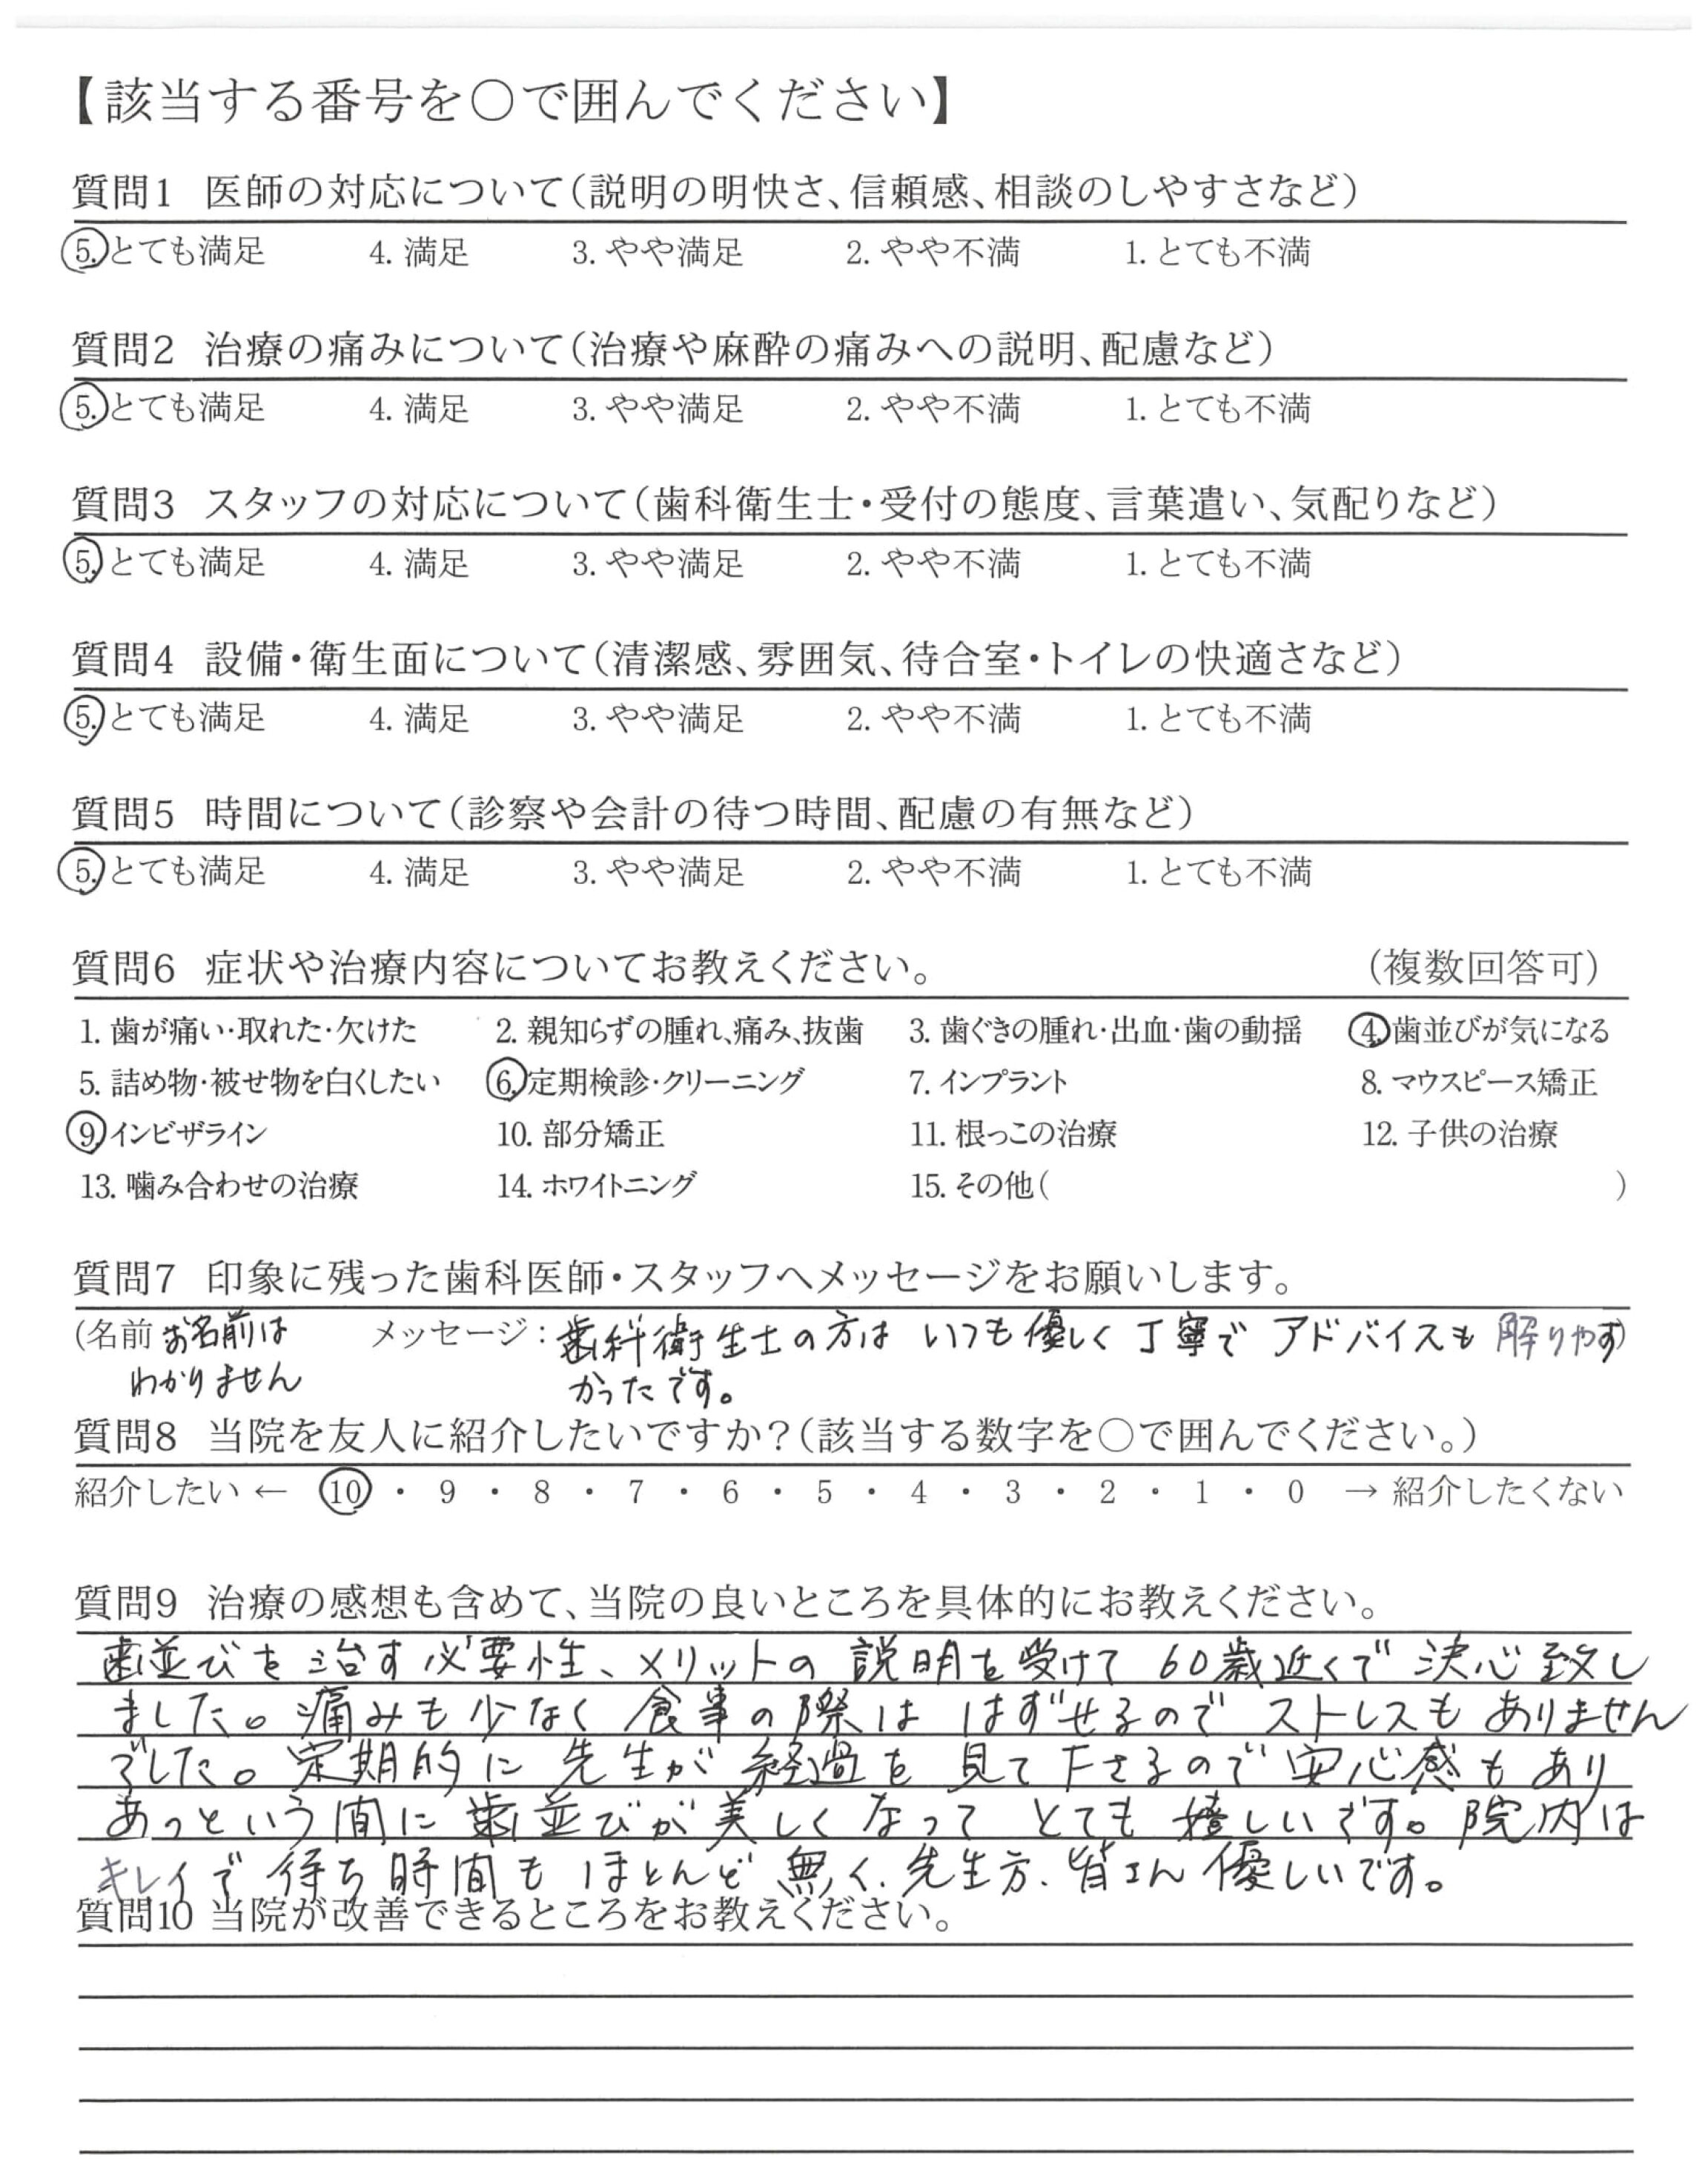 【該当する番号を○で囲んでください】
質問1 医師の対応について(説明の明快さ、信頼感、相談のしやすさなど)
5. とても満足 4. 満足 3. やや満足 2. やや不満 1. とても不満
質問2 治療の痛みについて(治療や麻酔の痛みへの説明、配慮など)
5. とても満足 4. 満足 3. やや満足 2. やや不満 1. とても不満
質問3 スタッフの対応について(歯科衛生士・受付の態度、言葉遣い、気配りなど)
5. とても満足 4. 満足 3. やや満足 2. やや不満 1. とても不満
質問4 設備・衛生面について(清潔感、雰囲気、待合室・トイレの快適さなど)
5. とても満足 4. 満足 3. やや満足 2. やや不満 1. とても不満
質問5 時間について(診察や会計の待つ時間、配慮の有無など)
5. とても満足 4. 満足 3. やや満足 2. やや不満 1. とても不満
質問6 症状や治療内容についてお教えください。 (複数回答可)
1. 歯が痛い・取れた・欠けた 2. 親知らずの腫れ、痛み、抜歯 3. 歯ぐきの腫れ・出血・歯の動揺 4. 歯並びが気になる
5. 詰め物・被せ物を白くしたい 6. 定期検診・クリーニング 7. インプラント 8. マウスピース矯正
9. インビザライン 10. 部分矯正 11. 根っこの治療 12. 子供の治療
13. 噛み合わせの治療 14. ホワイトニング 15. その他( )
質問7 印象に残った歯科医師・スタッフへメッセージをお願いします。
(名前 お名前は メッセージ : 歯科衛生士の方は いつも優しく丁寧で アドバイスも 解りやす)
わかりません かったです。
質問8 当院を友人に紹介したいですか?(該当する数字を○で囲んでください。)
紹介したい ← 10 ・ 9 ・ 8 ・ 7 ・ 6 ・ 5 ・ 4 ・ 3 ・ 2 ・ 1 ・ 0 → 紹介したくない
質問9 治療の感想も含めて、当院の良いところを具体的にお教えください。
歯並びを治す必要性、メリットの説明を受けて60歳近くで決心致し
ました。痛みも少なく食事の際は はずせるのでストレスもありません
でした。定期的に先生が経過を見て下さるので安心感もあり
あっという間に歯並びが美しくなって とても嬉しいです。院内は
キレイで待ち時間もほとんど無く、先生方、皆さん優しいです。
質問10 当院が改善できるところをお教えください。